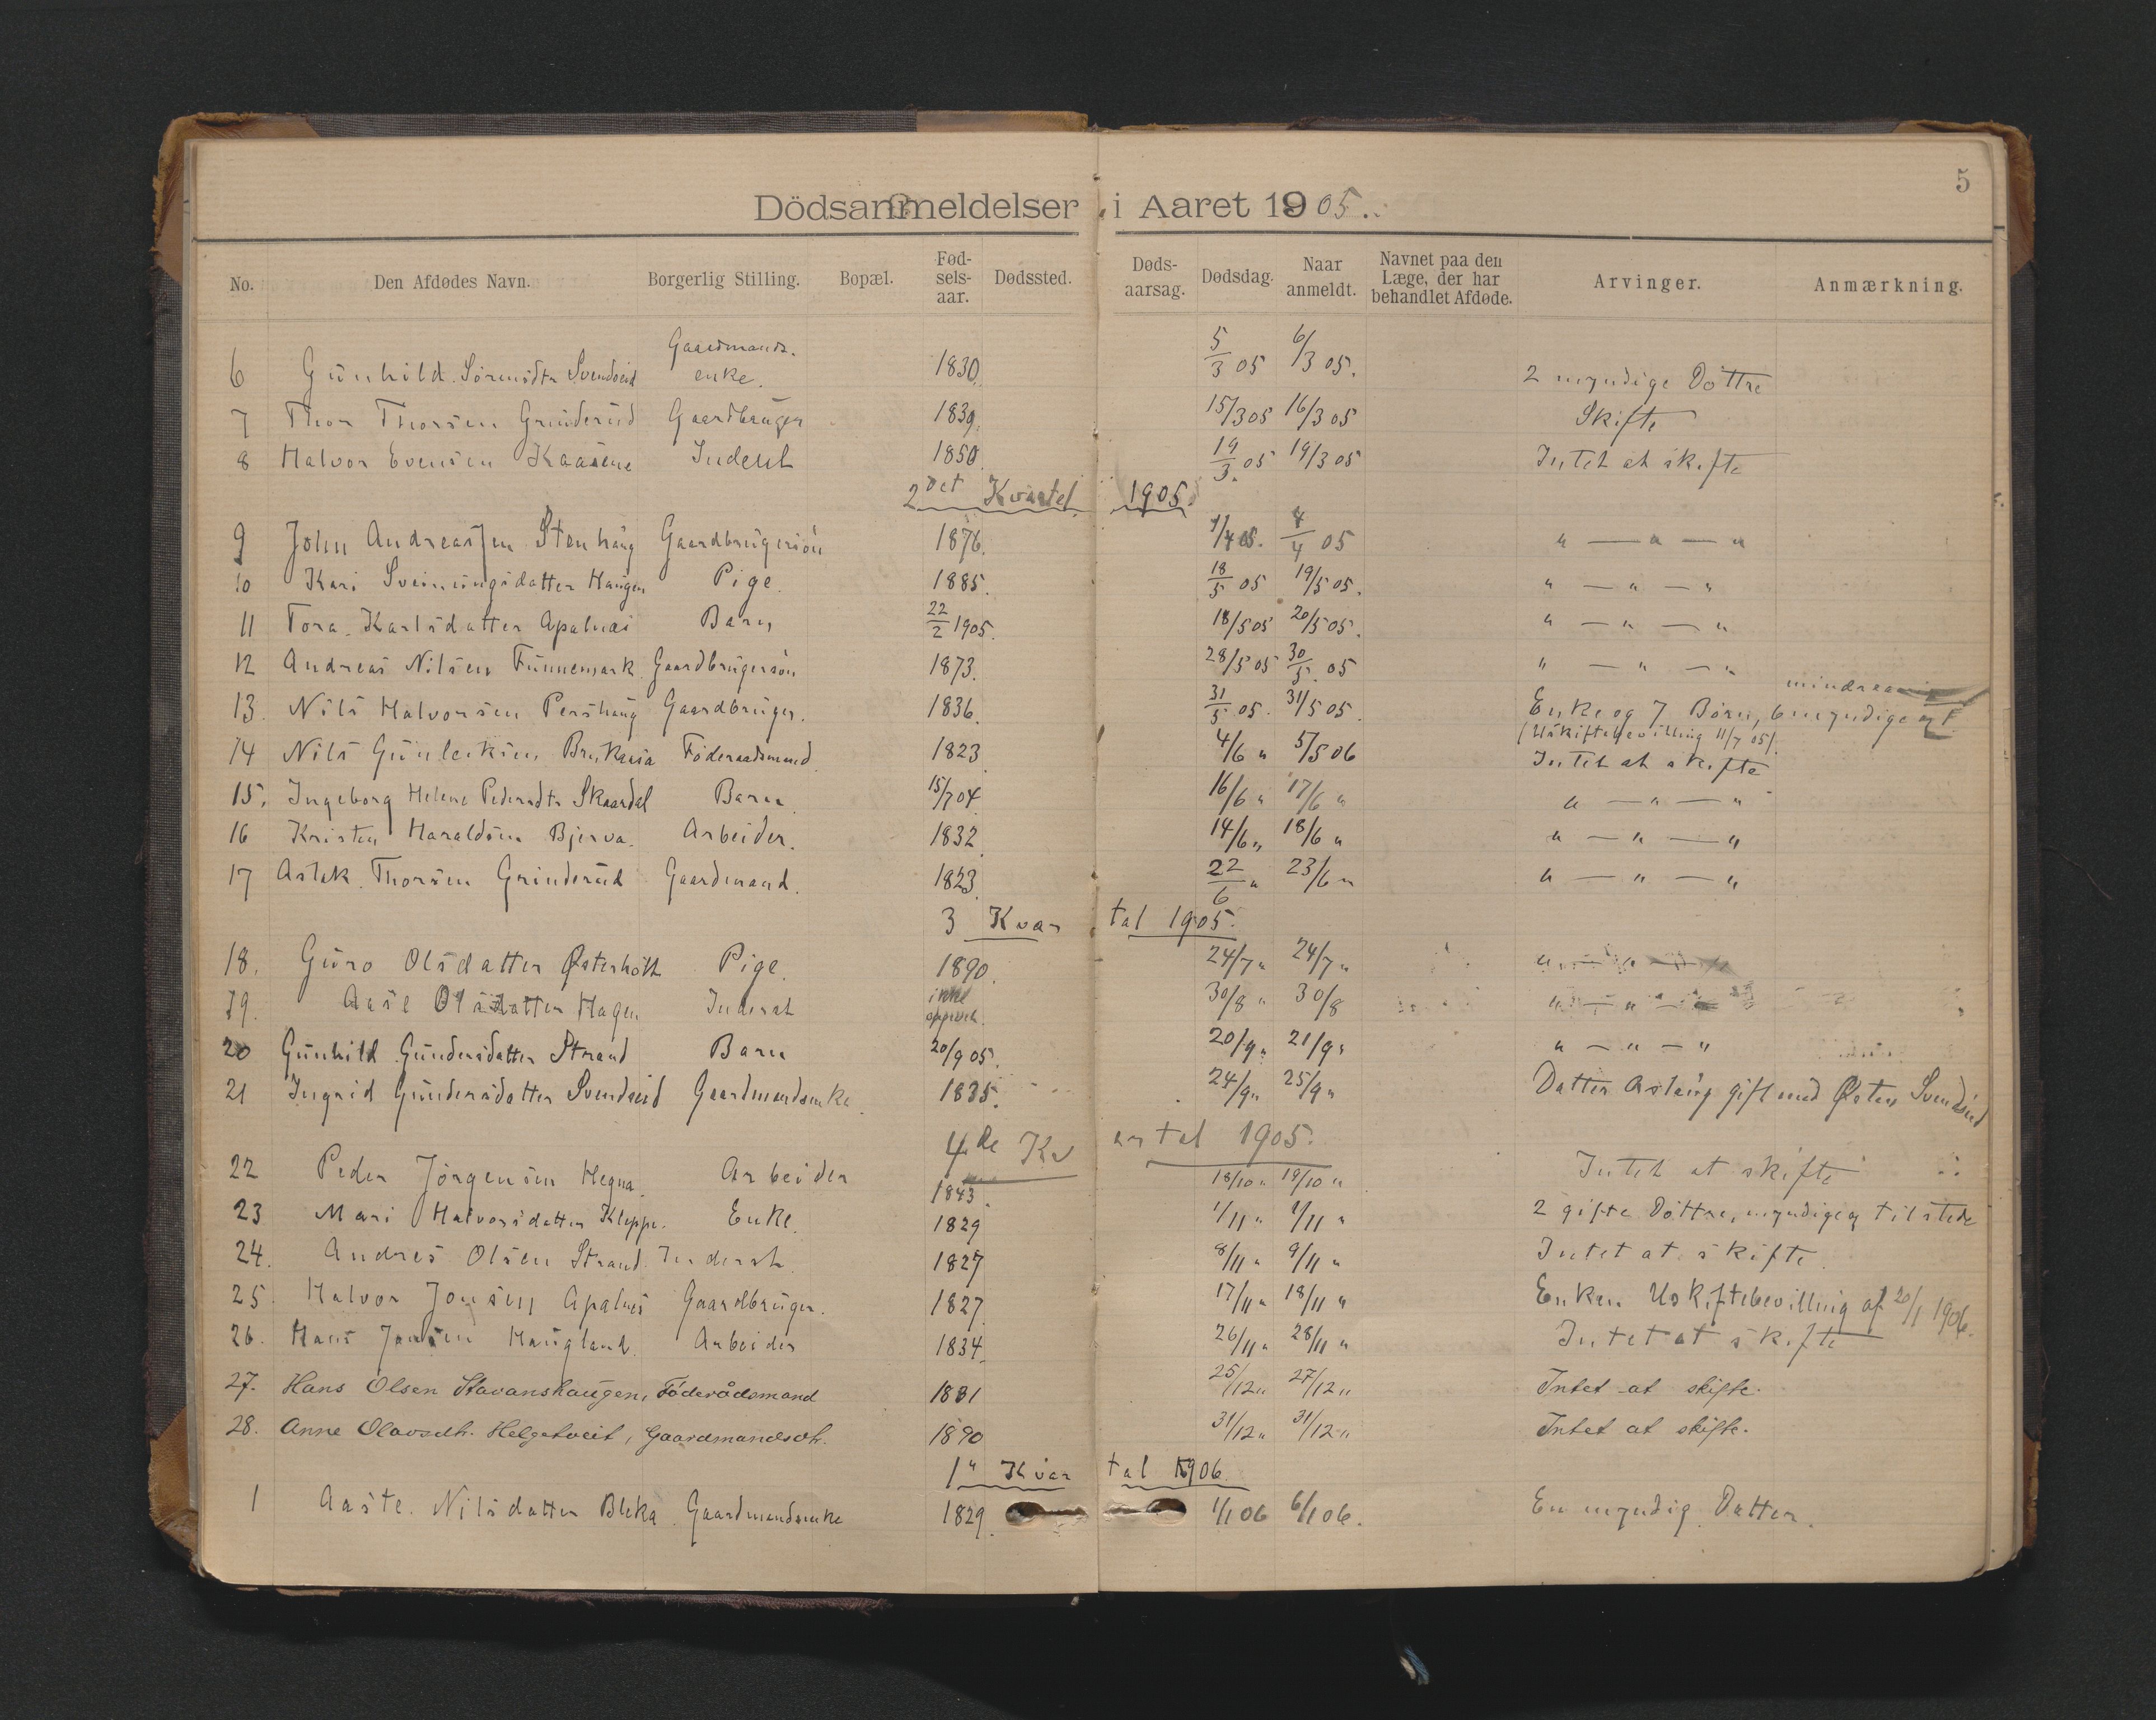 5
Dödsanmeldelser i Aaret 1905.
No. Den Afdødes Navn. Borgerlig Stilling. Bopæl. Fød-sels-aar. Dødssted. Døds-aarsag. Dødsdag. Naar anmeldt. Navnet paa den Læge, der har behandlet Afdøde. Arvinger. Anmærkning.
6 Gunhild Sörensdtr Svendseid Gaardmands-enke. 1830 5/3 05 6/3 05. 2 myndige Döttre
7 Thor Thorsen Grinderud Gaardbruger 1839. 15/3 05 16/3 05 Skifte
8 Halvor Evensen Kaasene Inderst 1850 19/3 05 19/3 05 Intet at skifte
2det Kvartel 1905.
9 John Andreassen Stenhaug Gaardbrugersön 1876. 1/4 05. 4/4 05 " — " — "
10 Kari Sveinungsdatter Haugen Pige. 1885. 18/5 05 19/5 05. " — " — "
11 Tora Karlsdatter Apalnæs Barn 22/2 1905. 18/5 05 20/5 05. " — " — "
12 Andreas Nilsen Funnemark Gaardbrugersön 1873. 28/5 05 30/5 05 " — " — "
13. Nils Halvorsen Pershaug Gaardbruger. 1836. 31/5 05. 31/5 05. Enke og 7 Börn, 6 myndige og 1 mindreaarig
(Uskiftebevilling 11/7 05).
14 Nils Gunleiksen Brukaasa Föderaadsmand 1823 4/6 " 5/5 06 Intet at skifte
15. Ingeborg Helene Pedersdtr Skaardal Barn 15/7 04 16/6 " 17/6 " " — " — "
16 Kristen Haraldsen Bjerva. Arbeider. 1832. 14/6 " 18/6 " " — " — "
17 Aslak Thorsen Grinderud Gaardmand. 1823 22/6 " 23/6 " " — " — "
3 Kvartal 1905.
18. Guro Olsdatter Østerholt Pige. 1890. 24/7 " 24/7 " " — " — "
19. Aase Olsdatter Hagen Inderst ikke 30/8 " 30/8 " — " — "
20 Gunhild Gundersdatter Strand Barn 20/9 05. 20/9 " 21/9 " " — " — "
21 Ingrid Gundersdatter Svendseid Gaardmandsenke. 1835. 24/9 " 25/9 " Datter Aslaug gift med Østen Svendseid
4de Kvartal 1905.
22 Peder Jörgensen Hegna. Arbeider 1843. 18/10 " 19/10 " Intet at skifte
23 Mari Halvorsdatter Kleppe. Enke. 1829 1/11 " 1/11 " 2 gifte Döttre, myndige og tilstede
24. Andres Olsen Strand. Inderst 1827 8/11 " 9/11 " Intet at skifte.
25. Halvor Jonsen Apalnes Gaardbruger. 1827. 17/11 " 18/11 " Enken Uskiftebevilling af 20/1 1906.
26. Hans Jonsen Haugland. Arbeider 1834. 26/11 " 28/11 " Intet at skifte
27. Hans Olsen Stavanshaugen, Föderådsmand 1831 25/12 " 27/12 " Intet at skifte.
28. Anne Olavsdtr. Helgetveit, Gaardmandsdtr. 1890 31/12 " 31/12 " Intet at skifte.
1" Kvartal 1906
1 Aaste. Nilsdatter Bleka Gaardmandsenke 1829. 1/1 06 6/1 06. En myndig Datter.